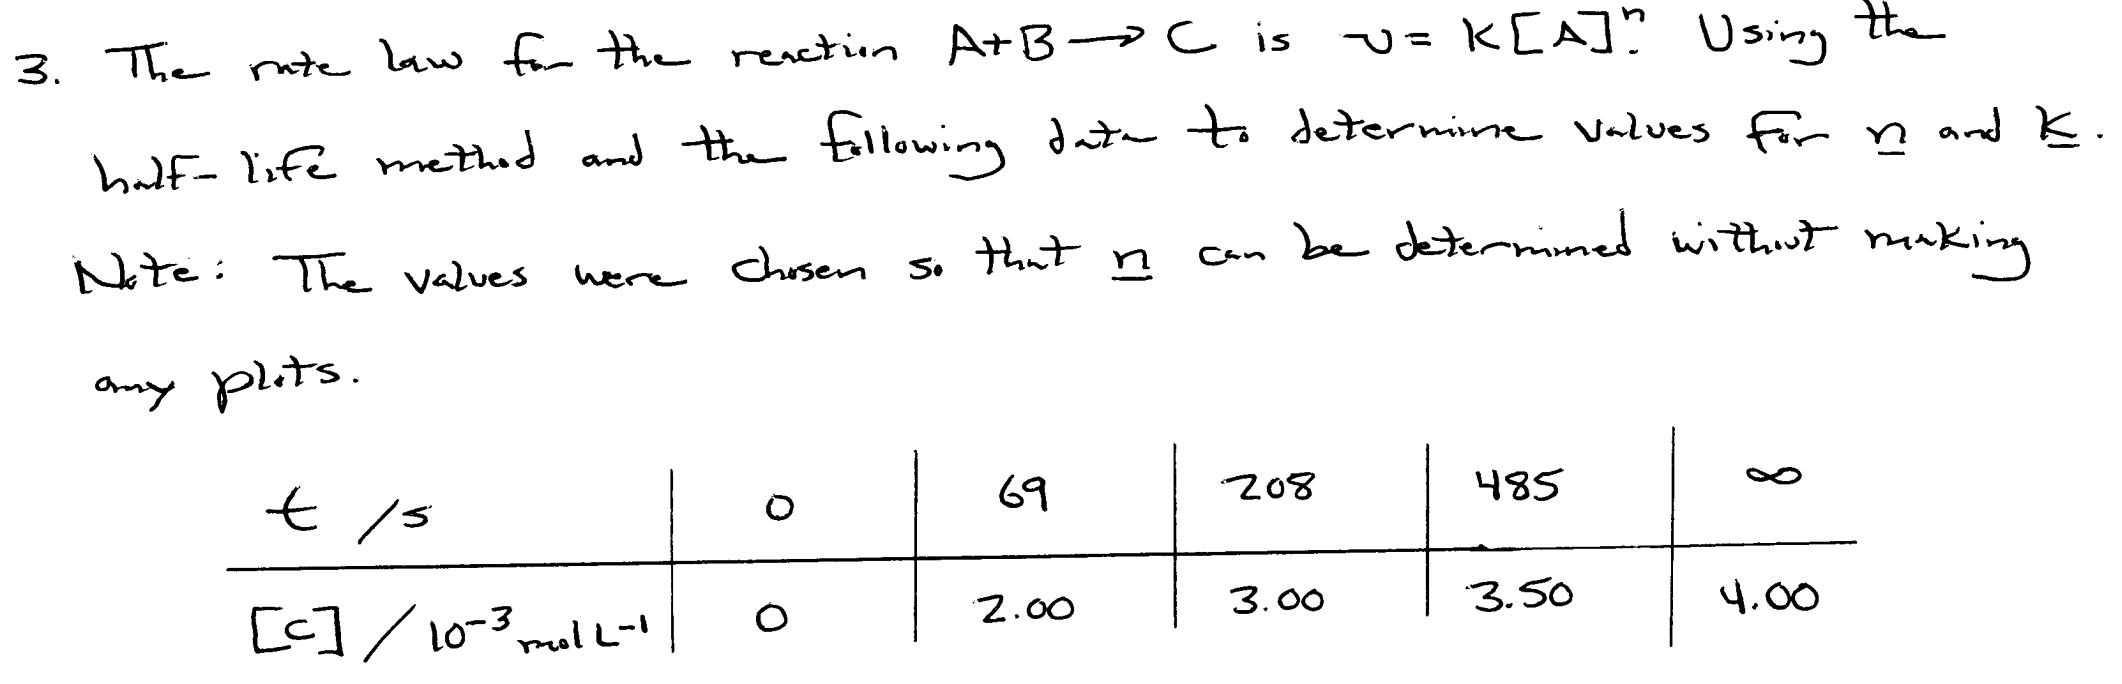 3. The rate law for the reaction A+B→C is v = k[A]ⁿ. Using the
half-life method and the following data to determine values for n and k.
Note: The values were chosen so that n can be determined without making
any plots.
t /s 0 69 208 485 ∞
[C] / 10⁻³ mol L⁻¹ 0 2.00 3.00 3.50 4.00